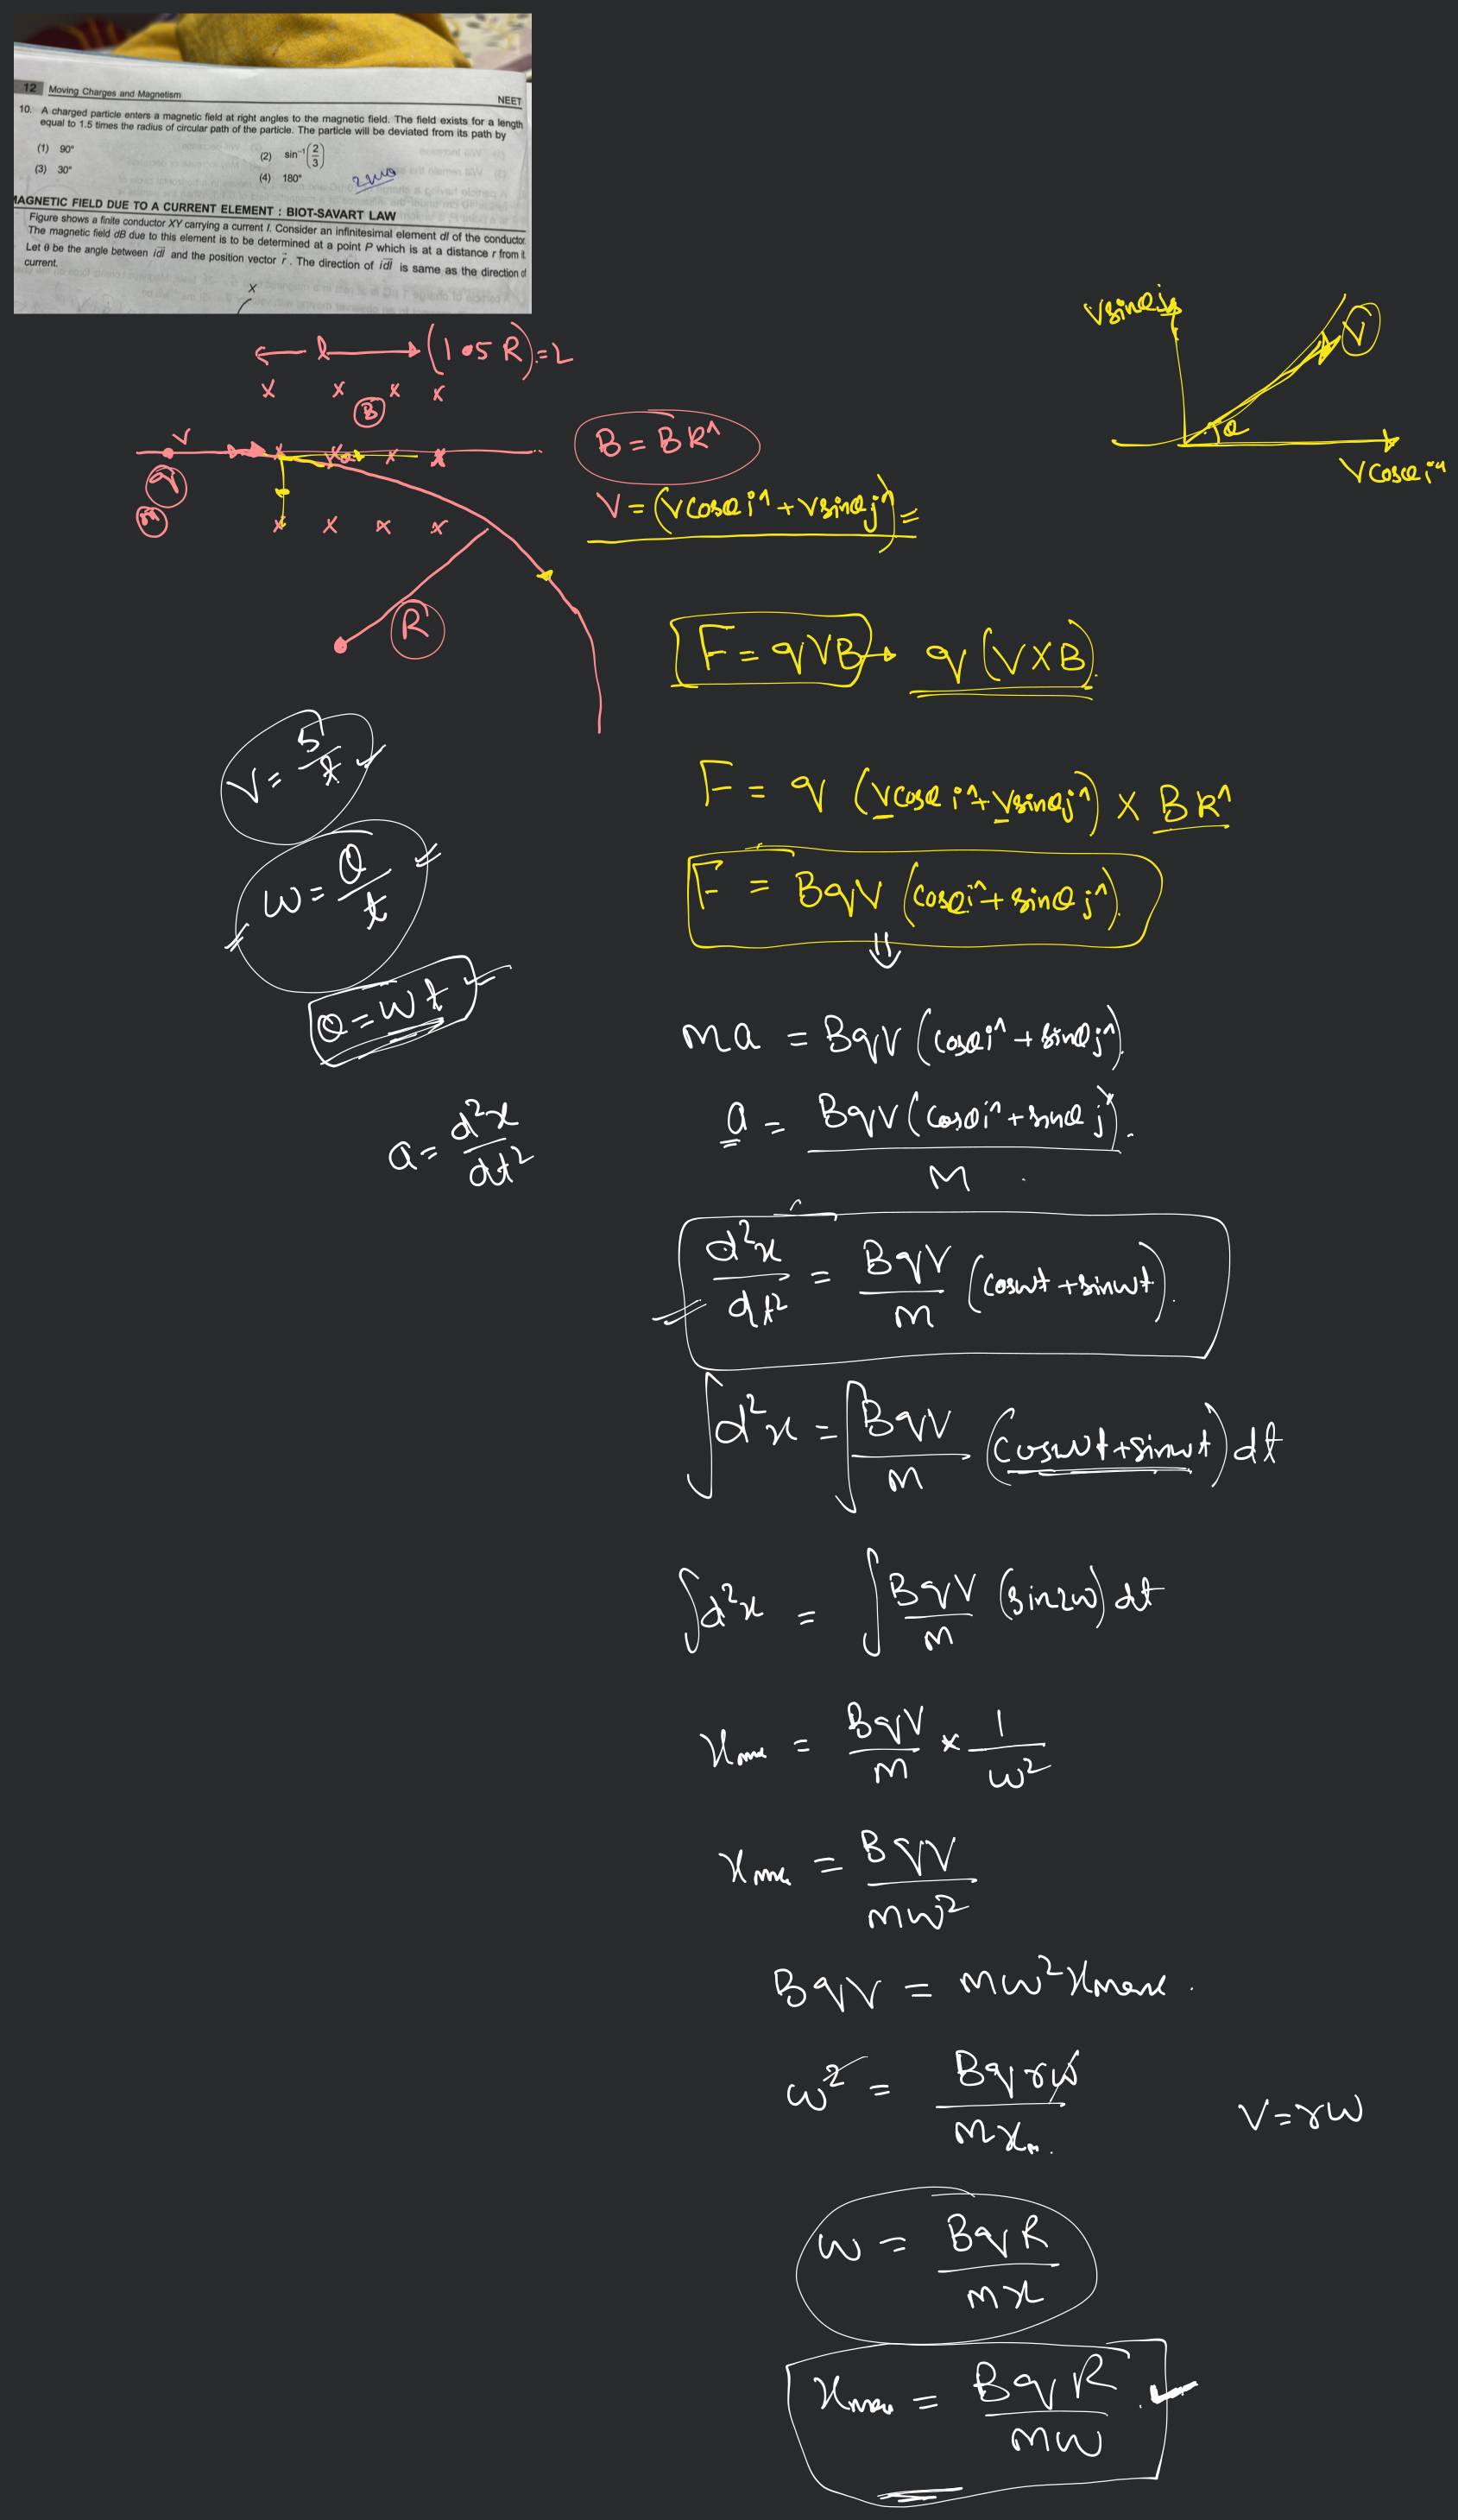 12 Moving Charges and Magnetism
NEET
10. A charged particle enters a magnetic field at right angles to the magnetic field. The field exists for a length
equal to 1.5 times the radius of circular path of the particle. The particle will be deviated from its path by
(1) 90°
(2) sin⁻¹(2/3)
(3) 30°
(4) 180°
MAGNETIC FIELD DUE TO A CURRENT ELEMENT : BIOT-SAVART LAW
Figure shows a finite conductor XY carrying a current I. Consider an infinitesimal element dl of the conductor.
The magnetic field dB due to this element is to be determined at a point P which is at a distance r from it.
Let θ be the angle between idl and the position vector r. The direction of idl is same as the direction of
current.
X
l (1.5 R) = L
x x x x
B
V
q
m
x x x x
B = B k^
V = (V cosθ i^ + V sinθ j^) =
R
V sinθ j^
V
θ
V cosθ i^
F = qVB → q (V × B).
V = s/t
F = q (V cosθ i^ + V sinθ j^) × B k^
ω = θ/t
F = BqV (cosθ i^ + sinθ j^).
⇓
θ = ωt
ma = BqV (cosθ i^ + sinθ j^).
a = d²x/dt²
a = BqV (cosθ i^ + sinθ j^)/M.
d²x/dt² = BqV/m (cosωt + sinωt).
∫d²x = ∫BqV/m (cosωt + sinωt) dt
∫d²x = ∫BqV/m (sin2ω) dt
= BqV/m × 1/ω²
= BqV/mω²
BqV = mω² xmax.
ω² = Bqrω/mxm.
V = rω
ω = BqR/mx
xmax = BqR/mω.